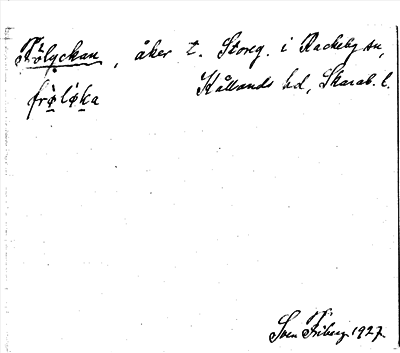 Frölyckan, åker t. Storeg. i Rackeby sn,
frö̀lö́ka Kållands hd, Skarab. l.
Sven Friberg 1927